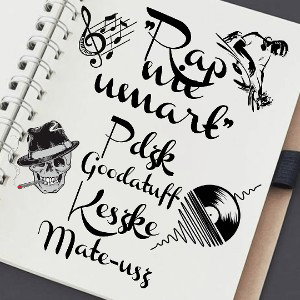 "Rap
nie
umarł"
Pdsk
Goodatuff
Kesske
Mate-uss